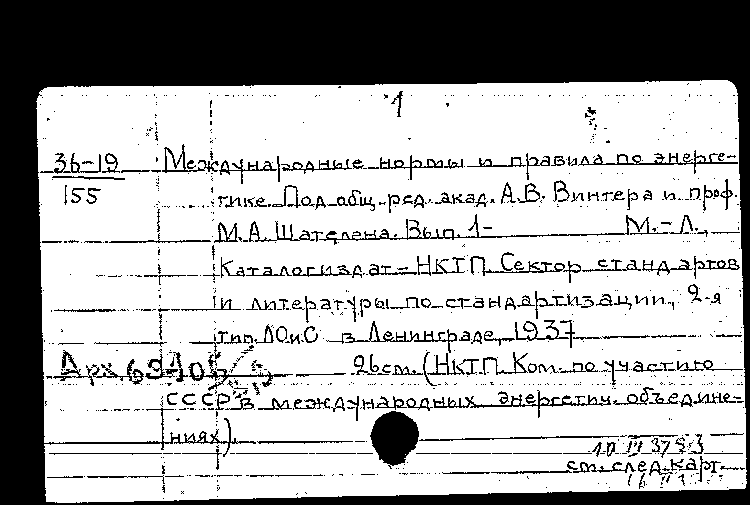 1
36-19 Международные нормы и правила по энерге-
155 тике. Под общ. ред. акад. А.В. Винтера и проф.
М.А. Шателена. Вып. 1- М.-Л.,
Каталогиздат-НКТП. Сектор стандартов
и литературы по стандартизации, 2-я
тип. ЛОиС в Ленинграде, 1937
Арх. 26см. (НКТП. Ком. по участию
СССР в международных энергетич. объедине-
ниях).
10 III 37
см. след. карт.